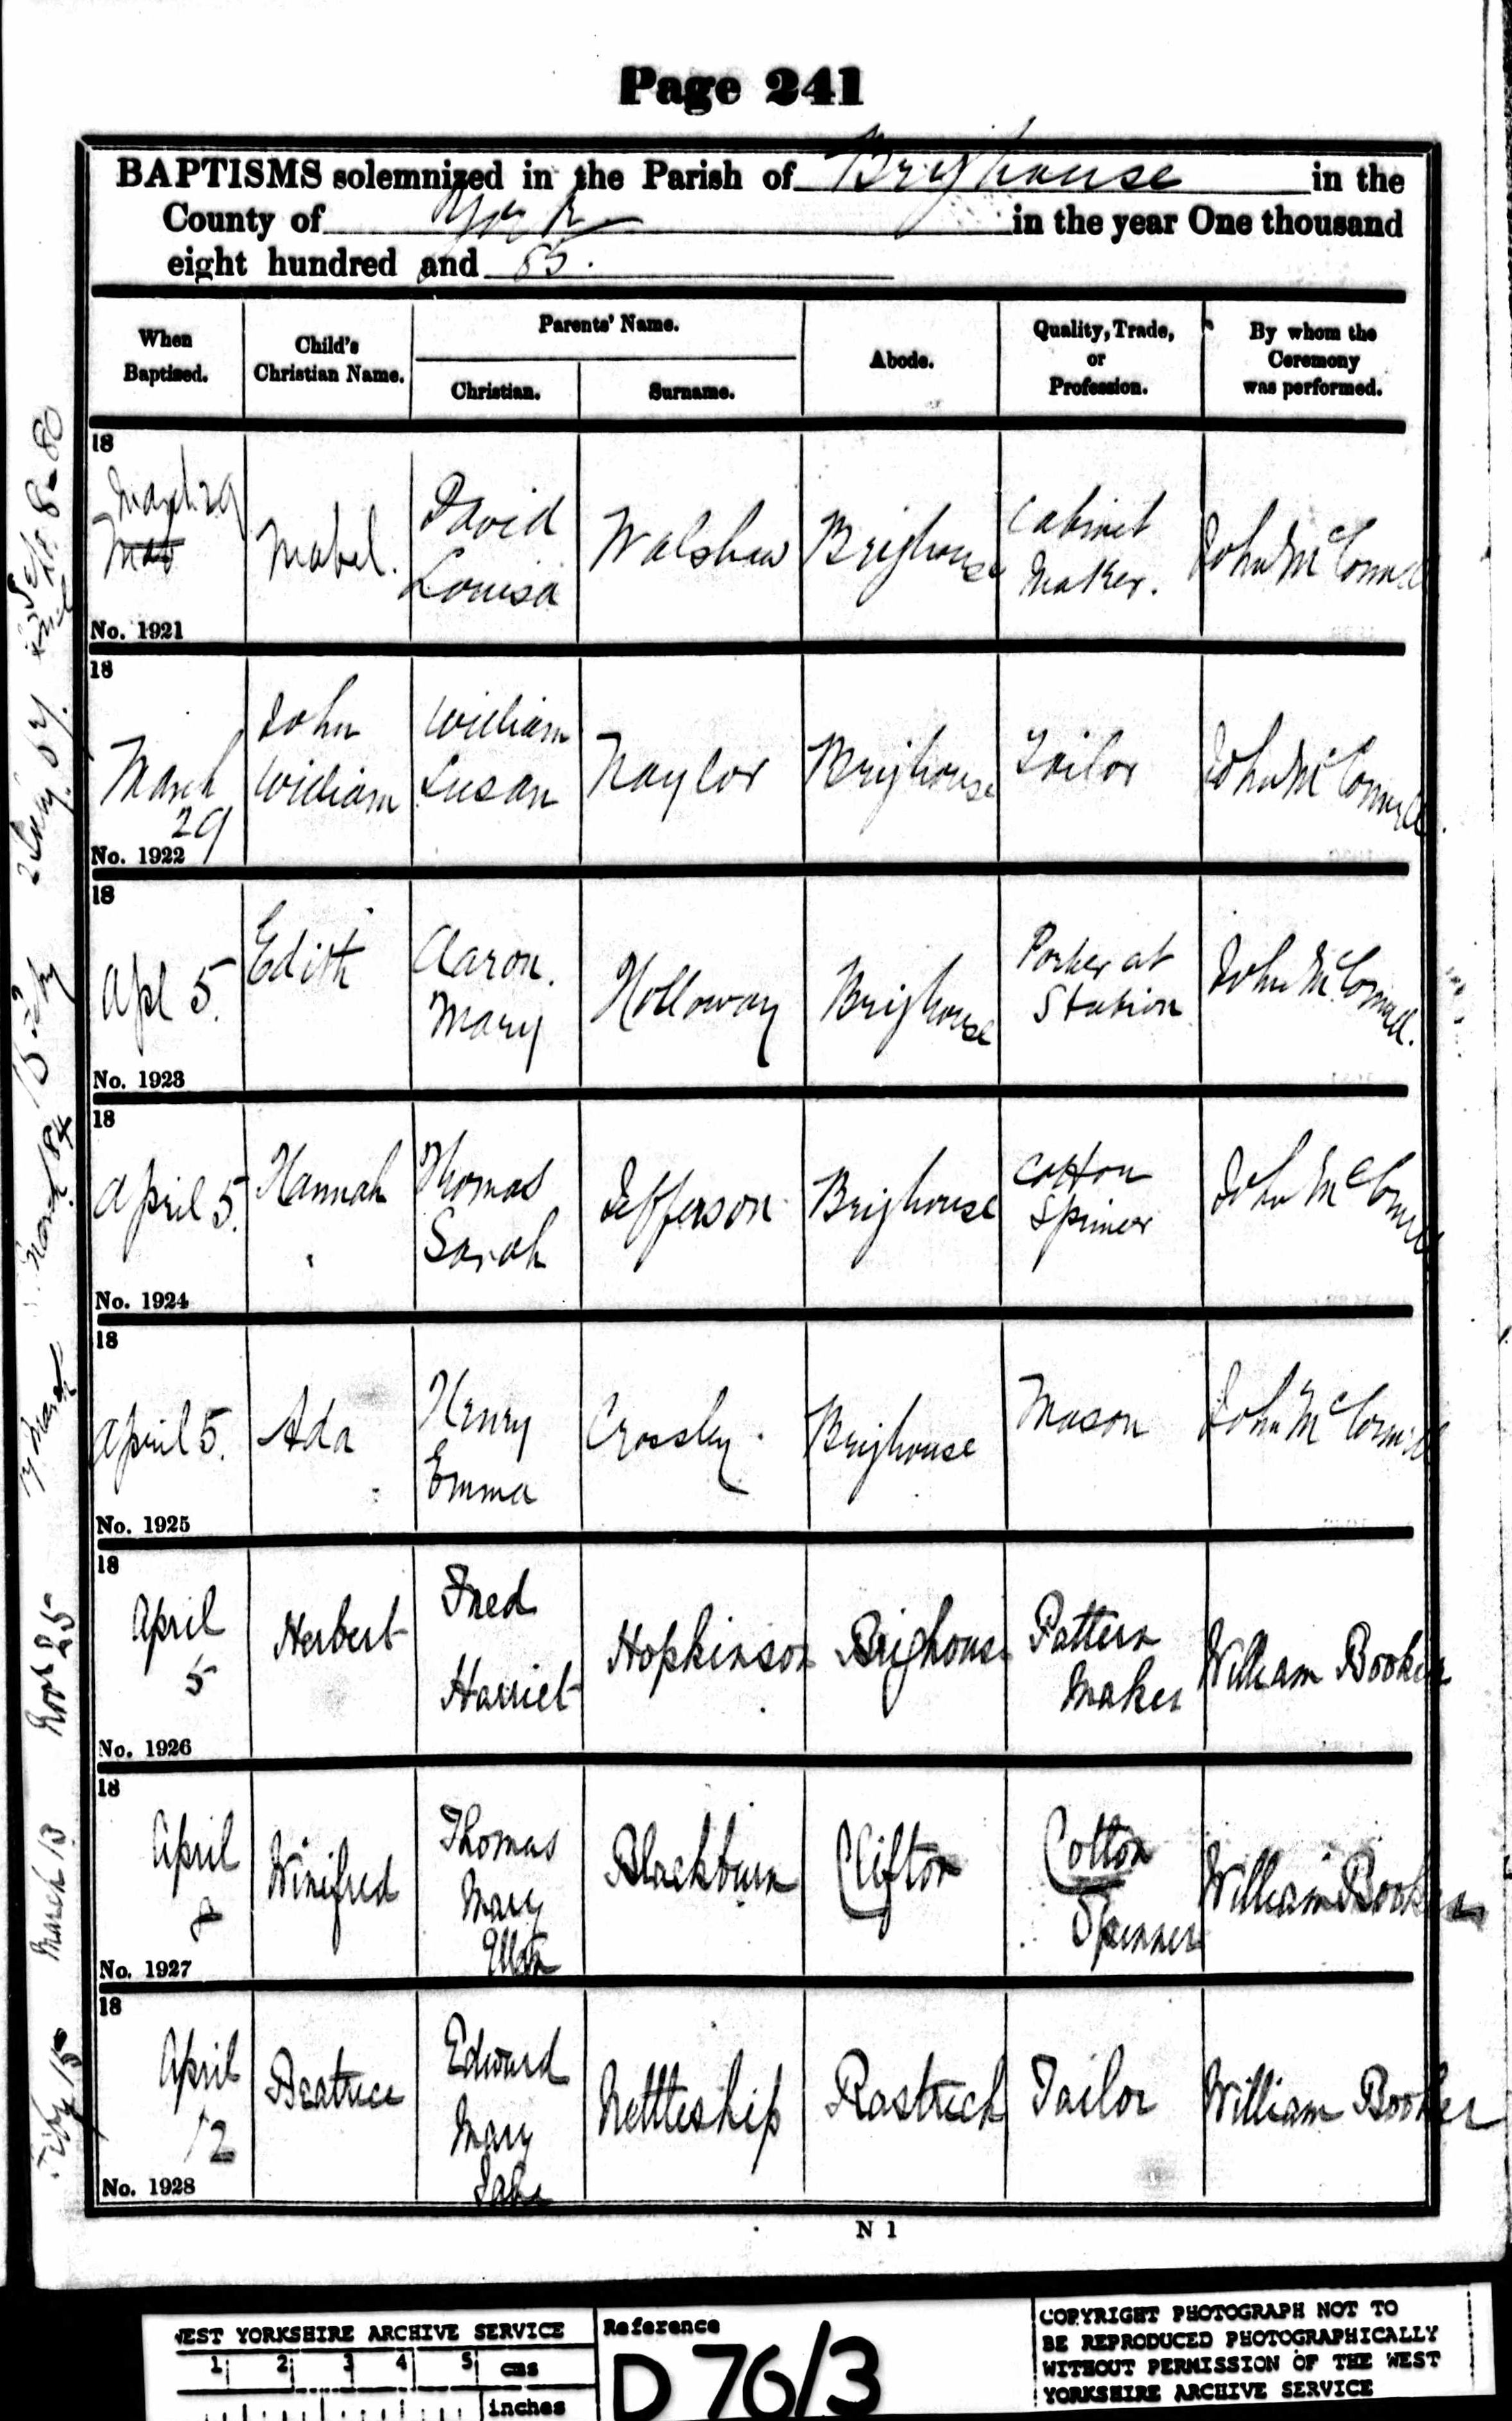 Page 241
BAPTISMS solemnized in the Parish of Brighouse in the
County of York in the year One thousand
eight hundred and 85.
When Baptized.
Child's Christian Name.
Parents' Name.
Christian.
Surname.
Abode.
Quality, Trade, or Profession.
By whom the Ceremony was performed.
18
March 29
Mabel.
David
Louisa
Walshaw
Brighouse
Cabinet
Maker.
John McConnell
No. 1921
18
March
29
John
William
William
Susan
Naylor
Brighouse
Tailor
John McConnell
No. 1922
18
Apl 5.
Edith
Aaron.
Mary
Holloway
Brighouse
Porter at
Station
John McConnell.
No. 1923
18
April 5.
Hannah
Thomas
Sarah
Jefferson
Brighouse
Cotton
Spinner
John McConnell
No. 1924
18
April 5.
Ada
Henry
Emma
Crossley.
Brighouse
Mason
John McConnell
No. 1925
18
April
5
Herbert
Fred
Harriet
Hopkinson
Brighouse
Pattern
Maker
William Booker
No. 1926
18
April
8
Winifred
Thomas
Mary
Ellen
Blackburn
Clifton
Cotton
Spinner
William Booker
No. 1927
18
April
12
Beatrice
Edward
Mary
Jane
Nettleship
Rastrick
Tailor
William Booker
No. 1928
N 1
March 13
March 84
WEST YORKSHIRE ARCHIVE SERVICE
1 2 3 4 5 cms
inches
Reference
D76/3
COPYRIGHT PHOTOGRAPH NOT TO
BE REPRODUCED PHOTOGRAPHICALLY
WITHOUT PERMISSION OF THE WEST
YORKSHIRE ARCHIVE SERVICE